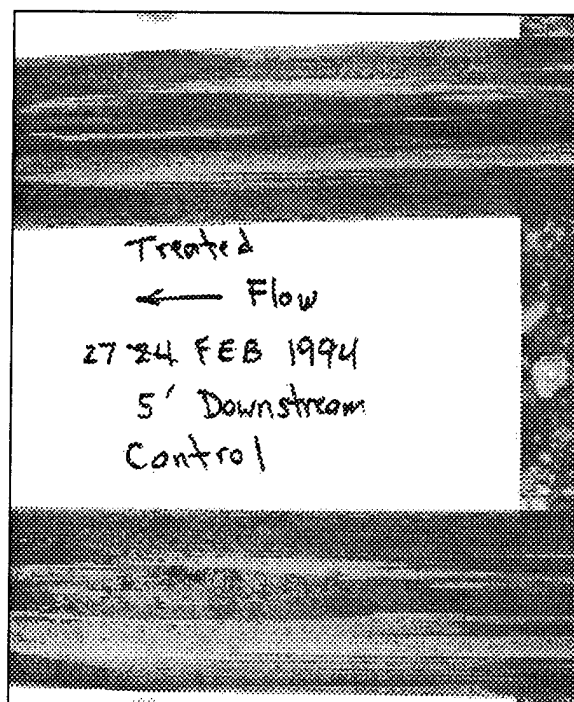 Treated
← Flow
27 24 FEB 1994
5' Downstream
Control